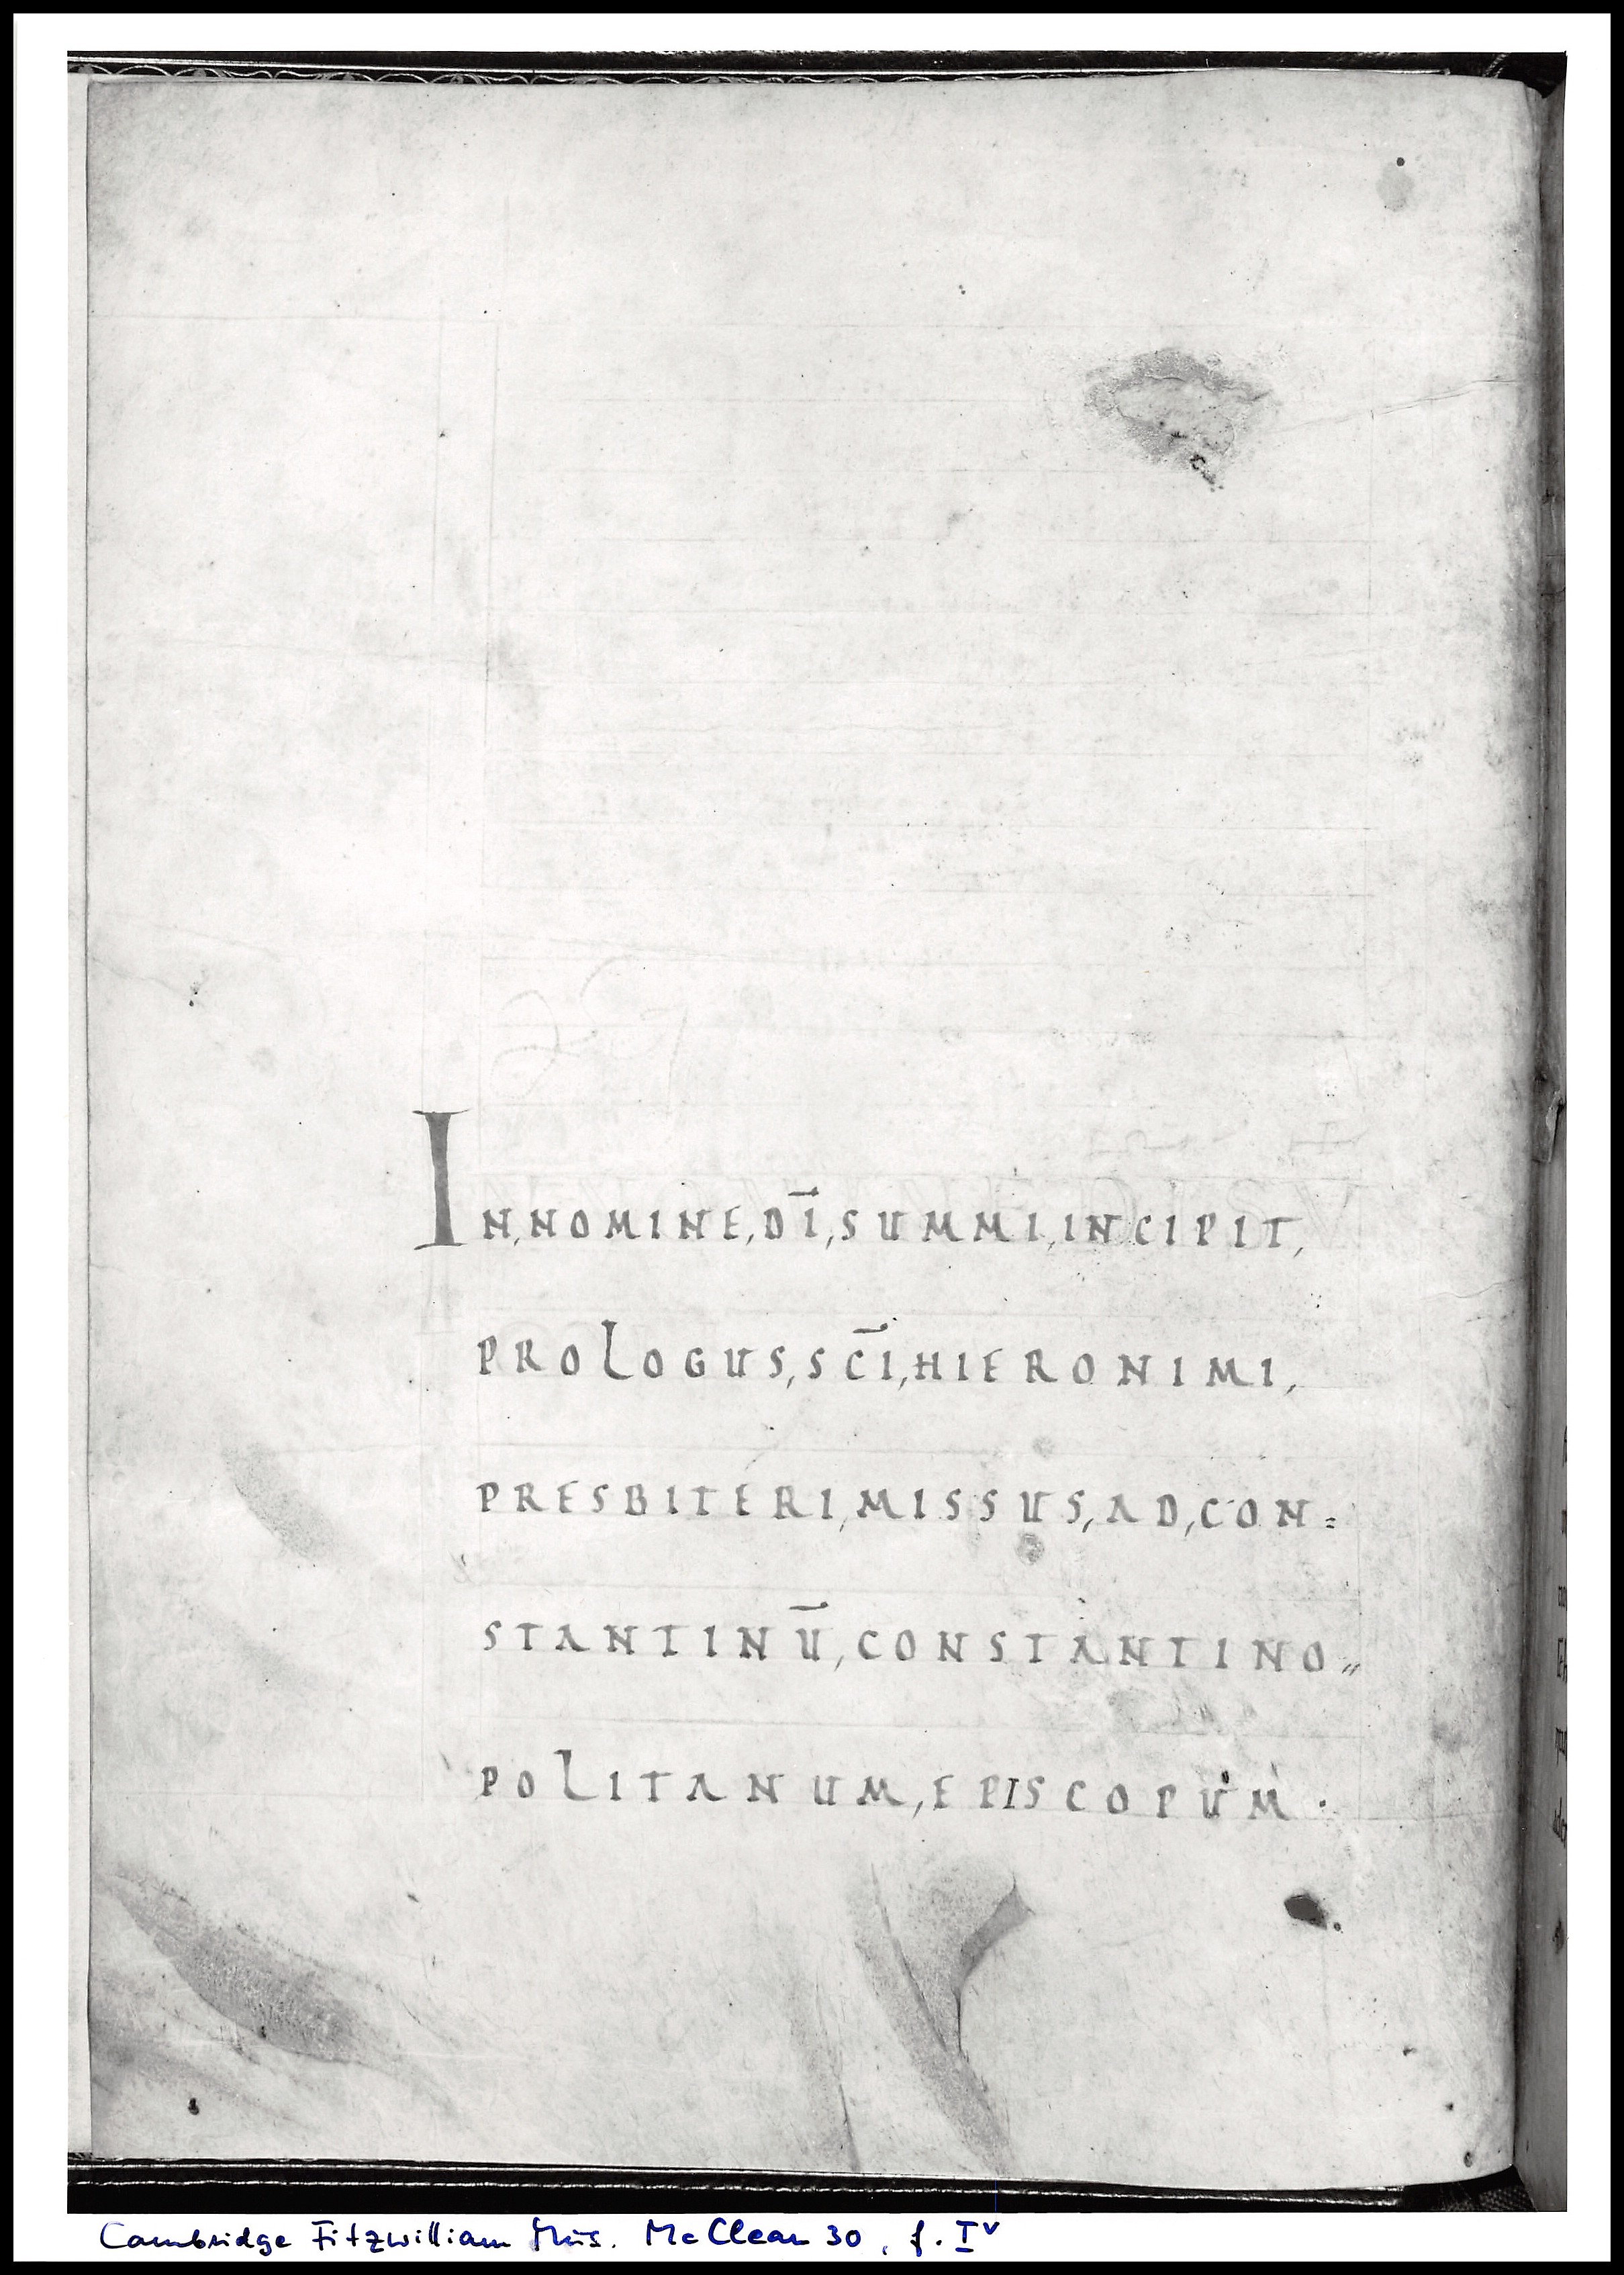 IN,NOMINE,DĪ,SUMMI,INCIPIT,
PROLOGUS,SC̄I,HIERONIMI,
PRESBITERI,MISSUS,AD,CON=
STANTINŪ,CONSTANTINO„
POLITANUM,EPISCOPUM.
Cambridge Fitzwilliam Mus. McClean 30, f. Iv